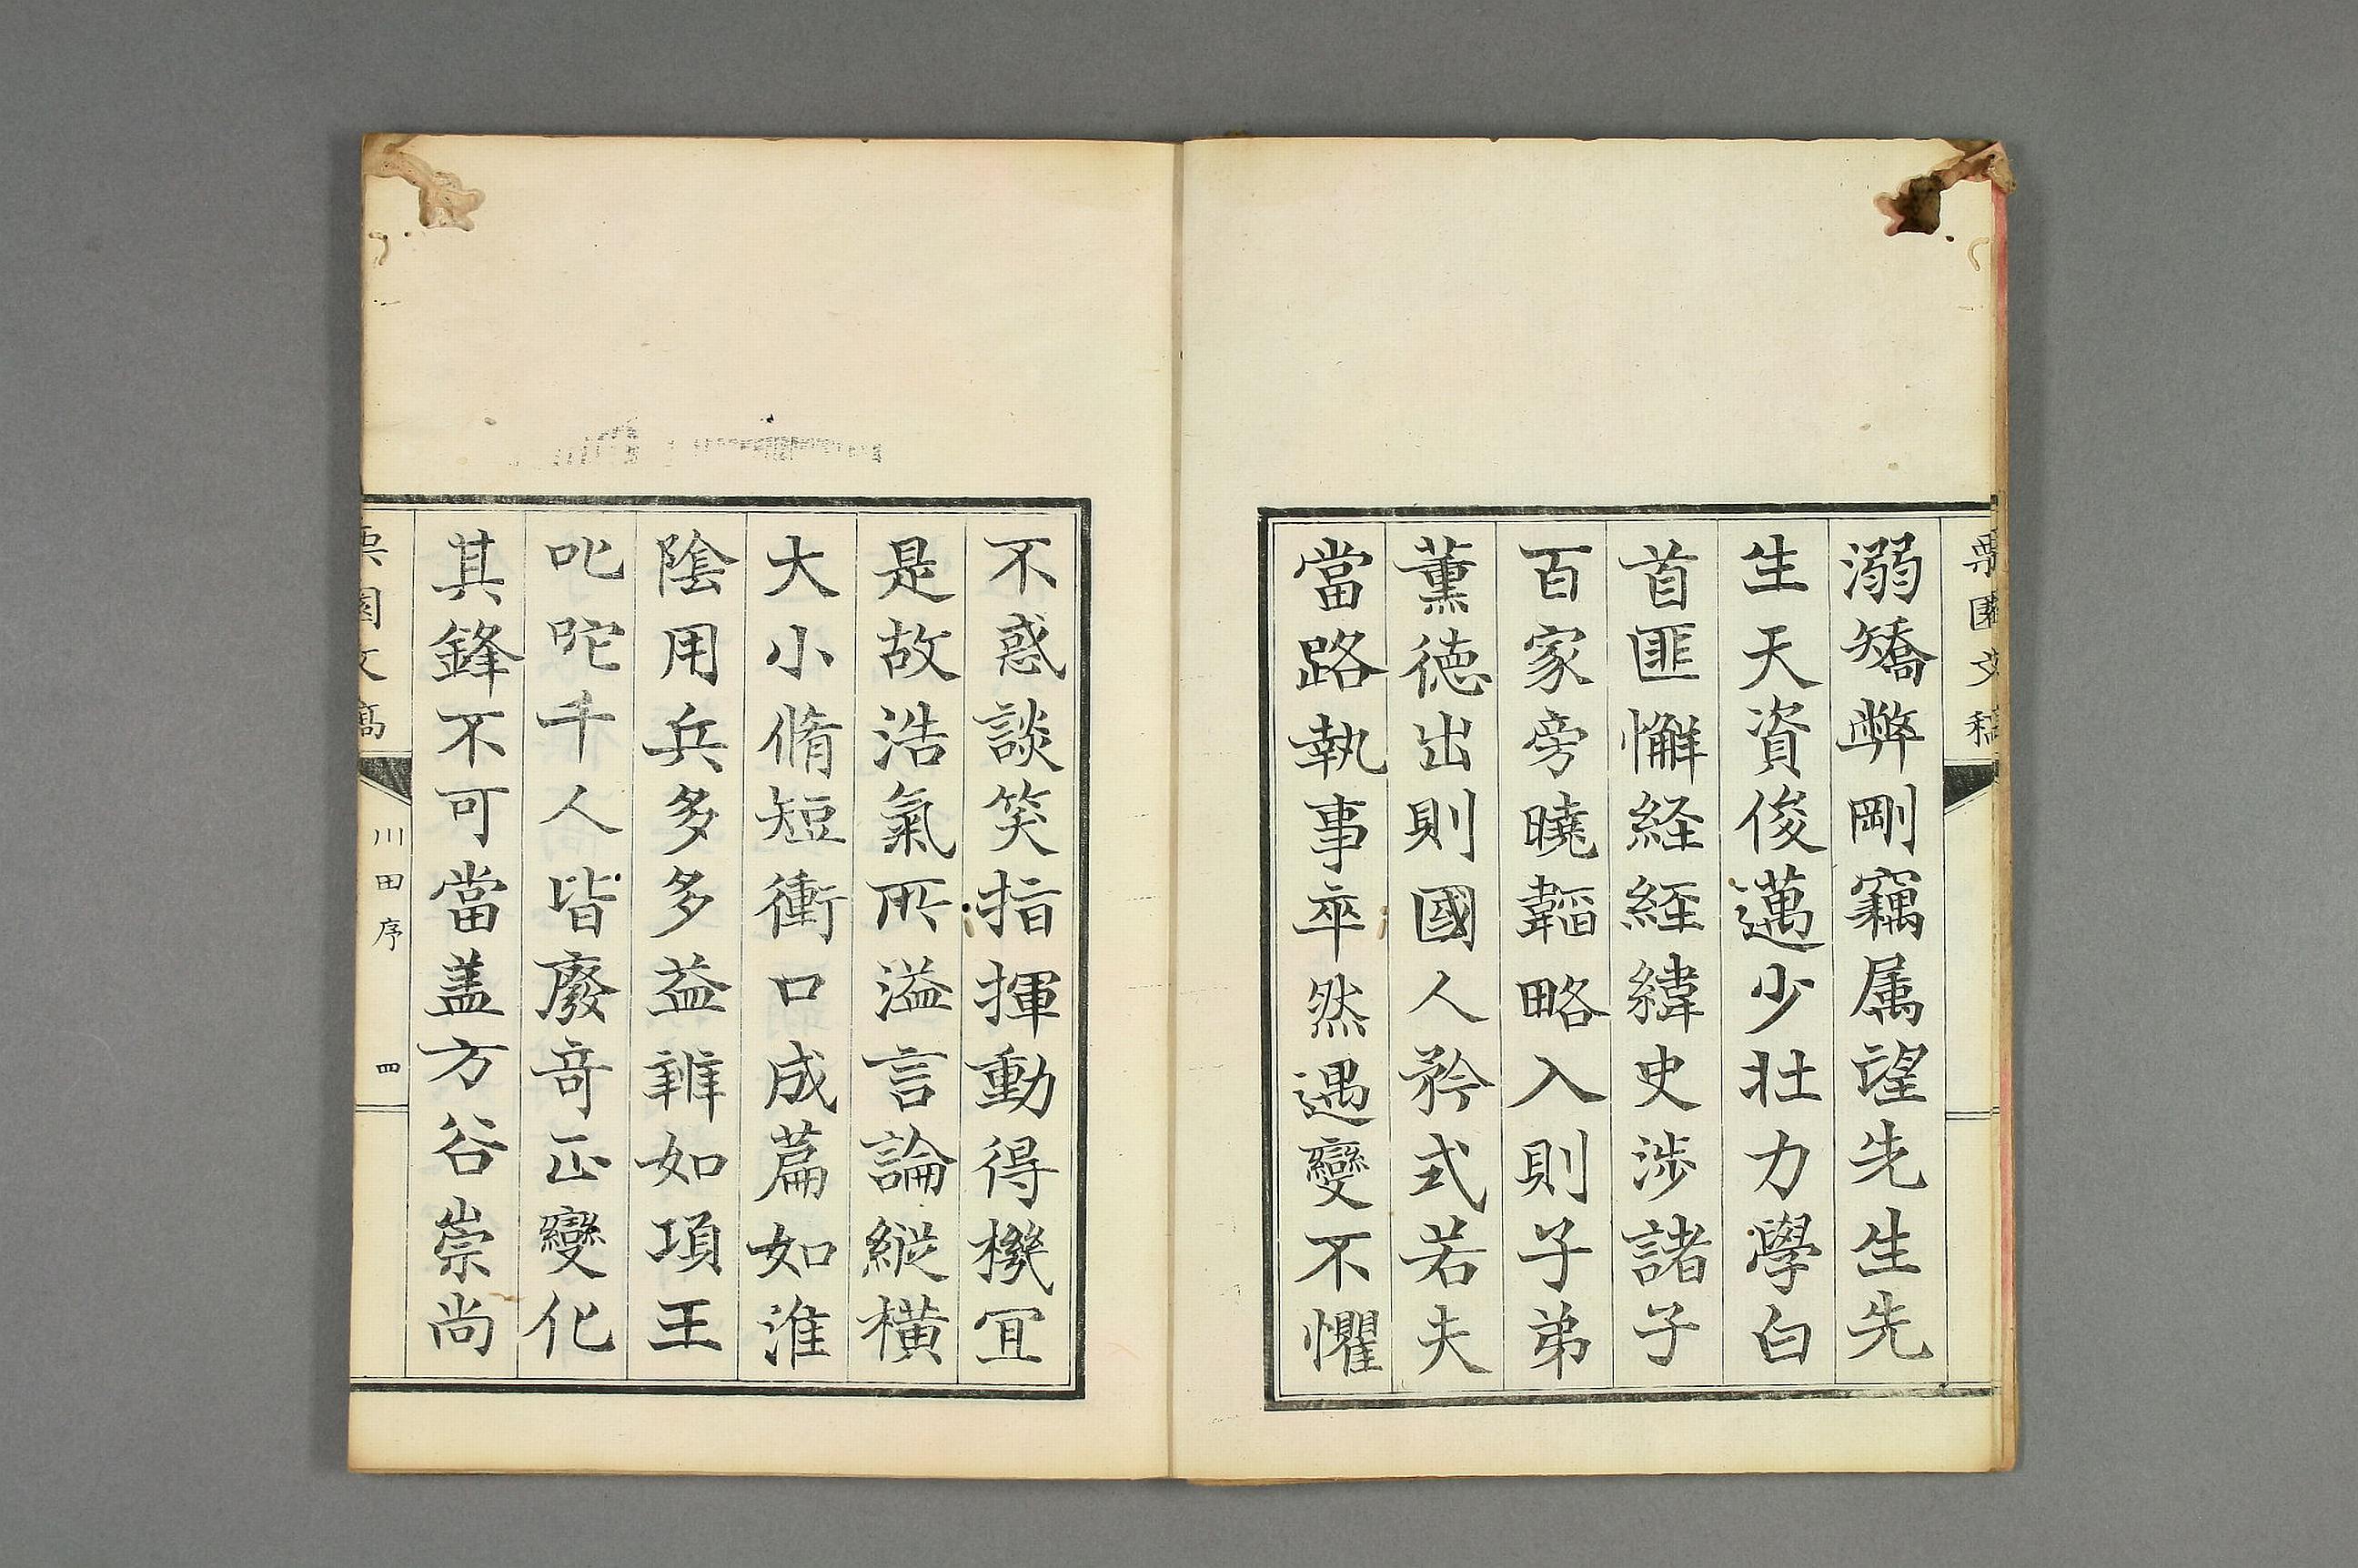 栗園文稿
溺矯弊剛竊属望先生先
生天資俊邁少壮力學白
首匪懈経経緯史渉諸子
百家旁曉韜略入則子弟
薫徳出則國人矜式若夫
當路執事卒然遇變不懼
不惑談笑指揮動得機宜
是故浩氣所溢言論縦横
大小脩短衝口成篇如淮
陰用兵多多益辦如項王
叱咤千人皆廢竒正變化
其鋒不可當盖方谷崇尚
栗園文稿
川田序
四